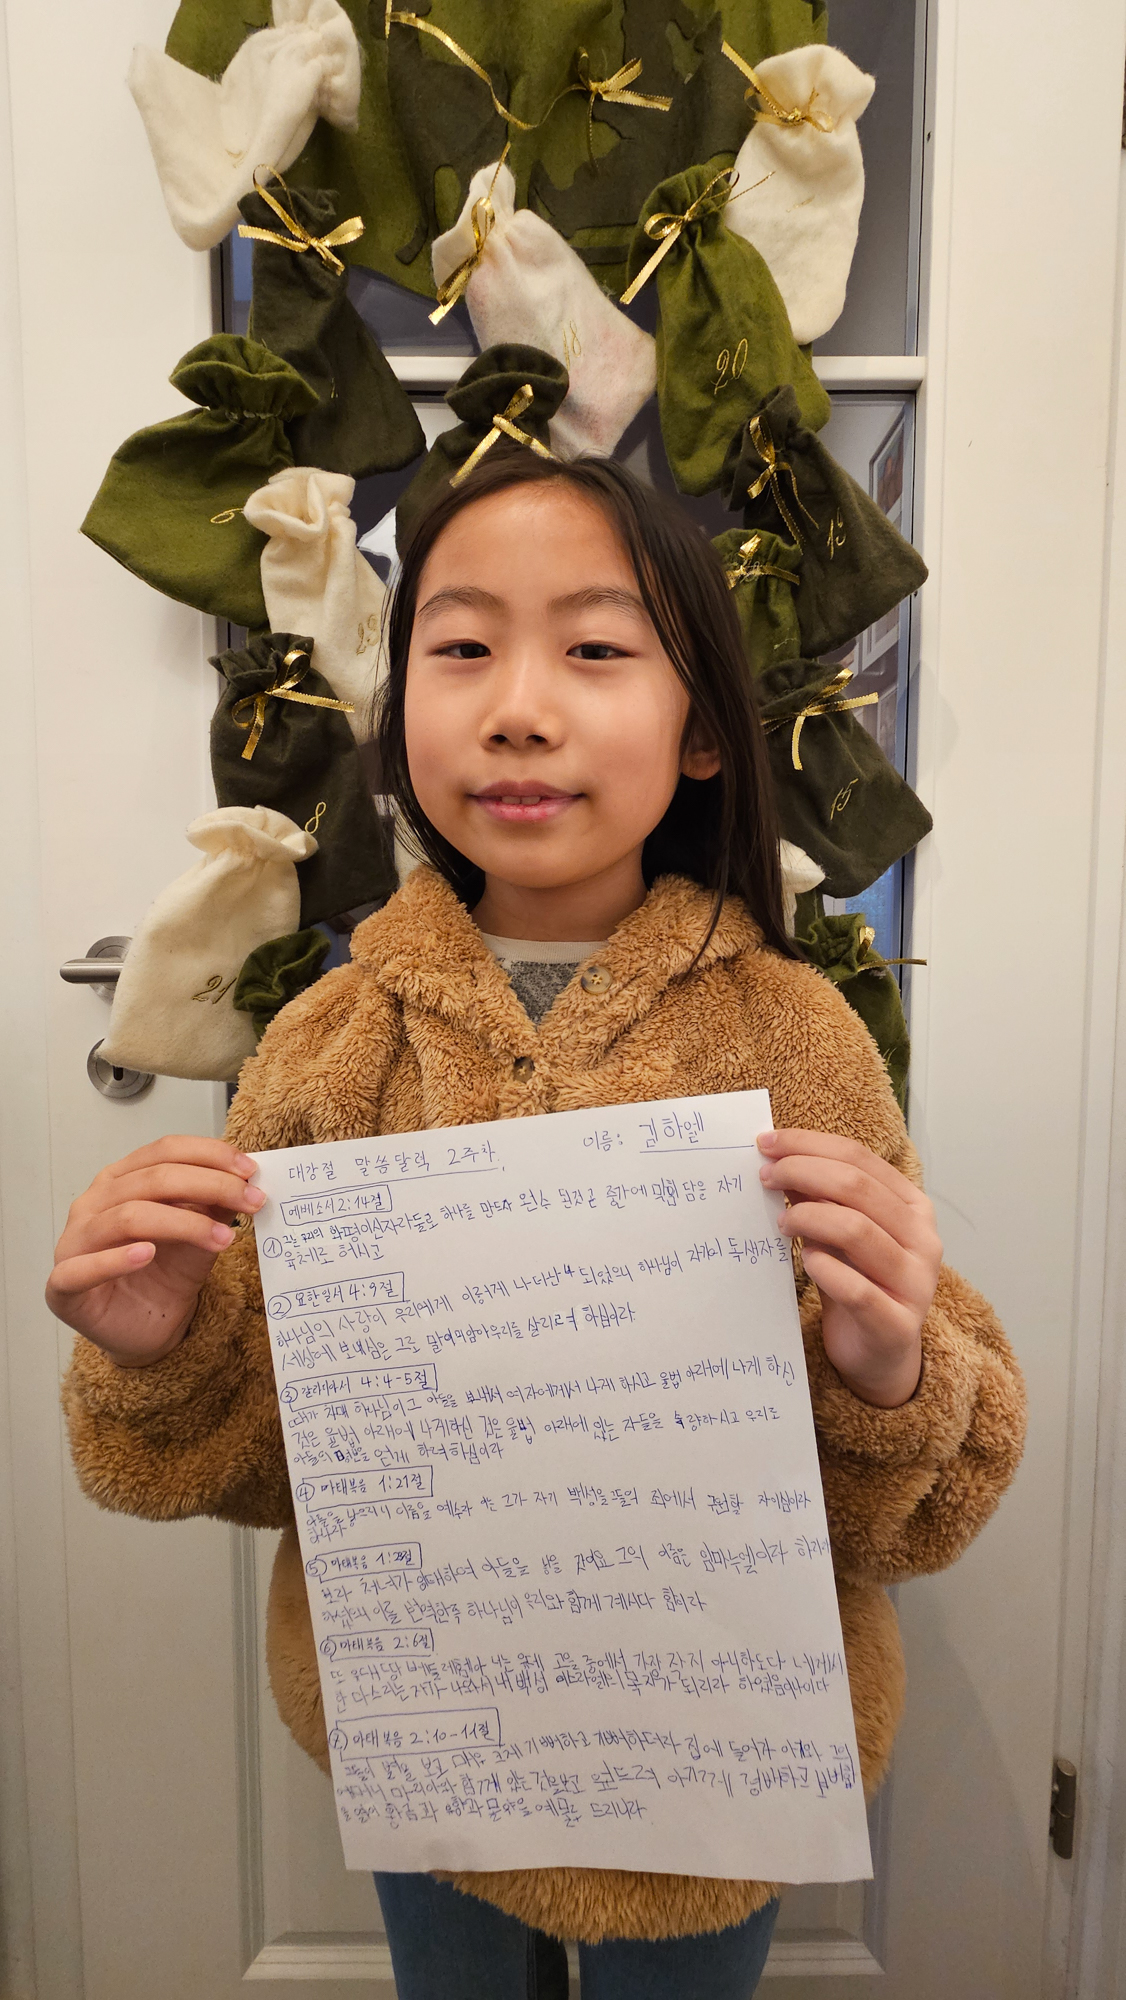 18
20
6
13
23
8
15
21
대강절 말씀달력 2주차. 이름: 김하엘
에베소서 2:14절
① 그는 우리의 화평이신자라둘로 하나를 만드사 원수 된것 곧 중간에 막힌 담을 자기
육체로 허시고
② 요한일서 4:9절
하나님의 사랑이 우리에게 이렇게 나타난 되었으니 하나님이 자기의 독생자를
세상에 보내심은 그로 말미암아우리를 살리려 하심이라
③ 갈라디아서 4:4-5절
때가 차매 하나님이그 아들을 보내서 여자에게서 나게 하시고 율법 아래에 나게 하신
것은 율법 아래에 나게하신 것은 율법 아래에 있는 자들을 속량하시고 우리로
아들의 얻게 하려하심이라
④ 마태복음 1:21절
아들을 낳으리니 이름을 예수라 그가 자기 백성을 그들의 죄에서 구원할 자이심이라
하니라
⑤ 마태복음 1:23절
보라 처녀가 잉태하여 아들을 낳을 것이요 그의 이름은 임마누엘이라 하리라
하셨으니 이를 번역한즉 하나님이 우리와 함께 계시다 함이라
⑥ 마태복음 2:6절
또 유대땅 베들레헴아 너는 유대 고을 중에서 가장 작지 아니하도다 네게서
한 다스리는 자가 나와서 내 백성 이스라엘의 목자가 되리라 하였음이니이다
⑦ 마태복음 2:10-11절
그들이 별을 보고 매우 크게 기뻐하고 기뻐하더라 집에 들어가 아기와 그의
어머니 마리아와 함께 있는 것을보고 엎드려 아기께 경배하고 보배합
을 열어 황금과 유향과 몰약을 예물로 드리니라